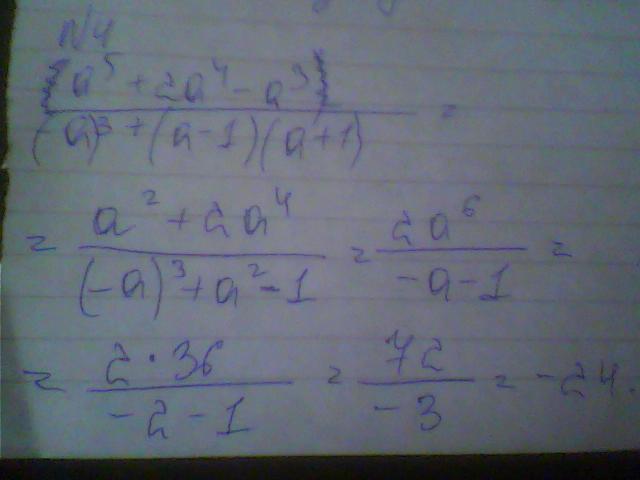 N4
a⁵ + 2a⁴ - a³ / (-a)³ + (a-1)(a+1) =
= a² + 2a⁴ / (-a)³ + a² - 1 = 2a⁶ / -a - 1 =
= 2 · 36 / -2 - 1 = 72 / -3 = -24.